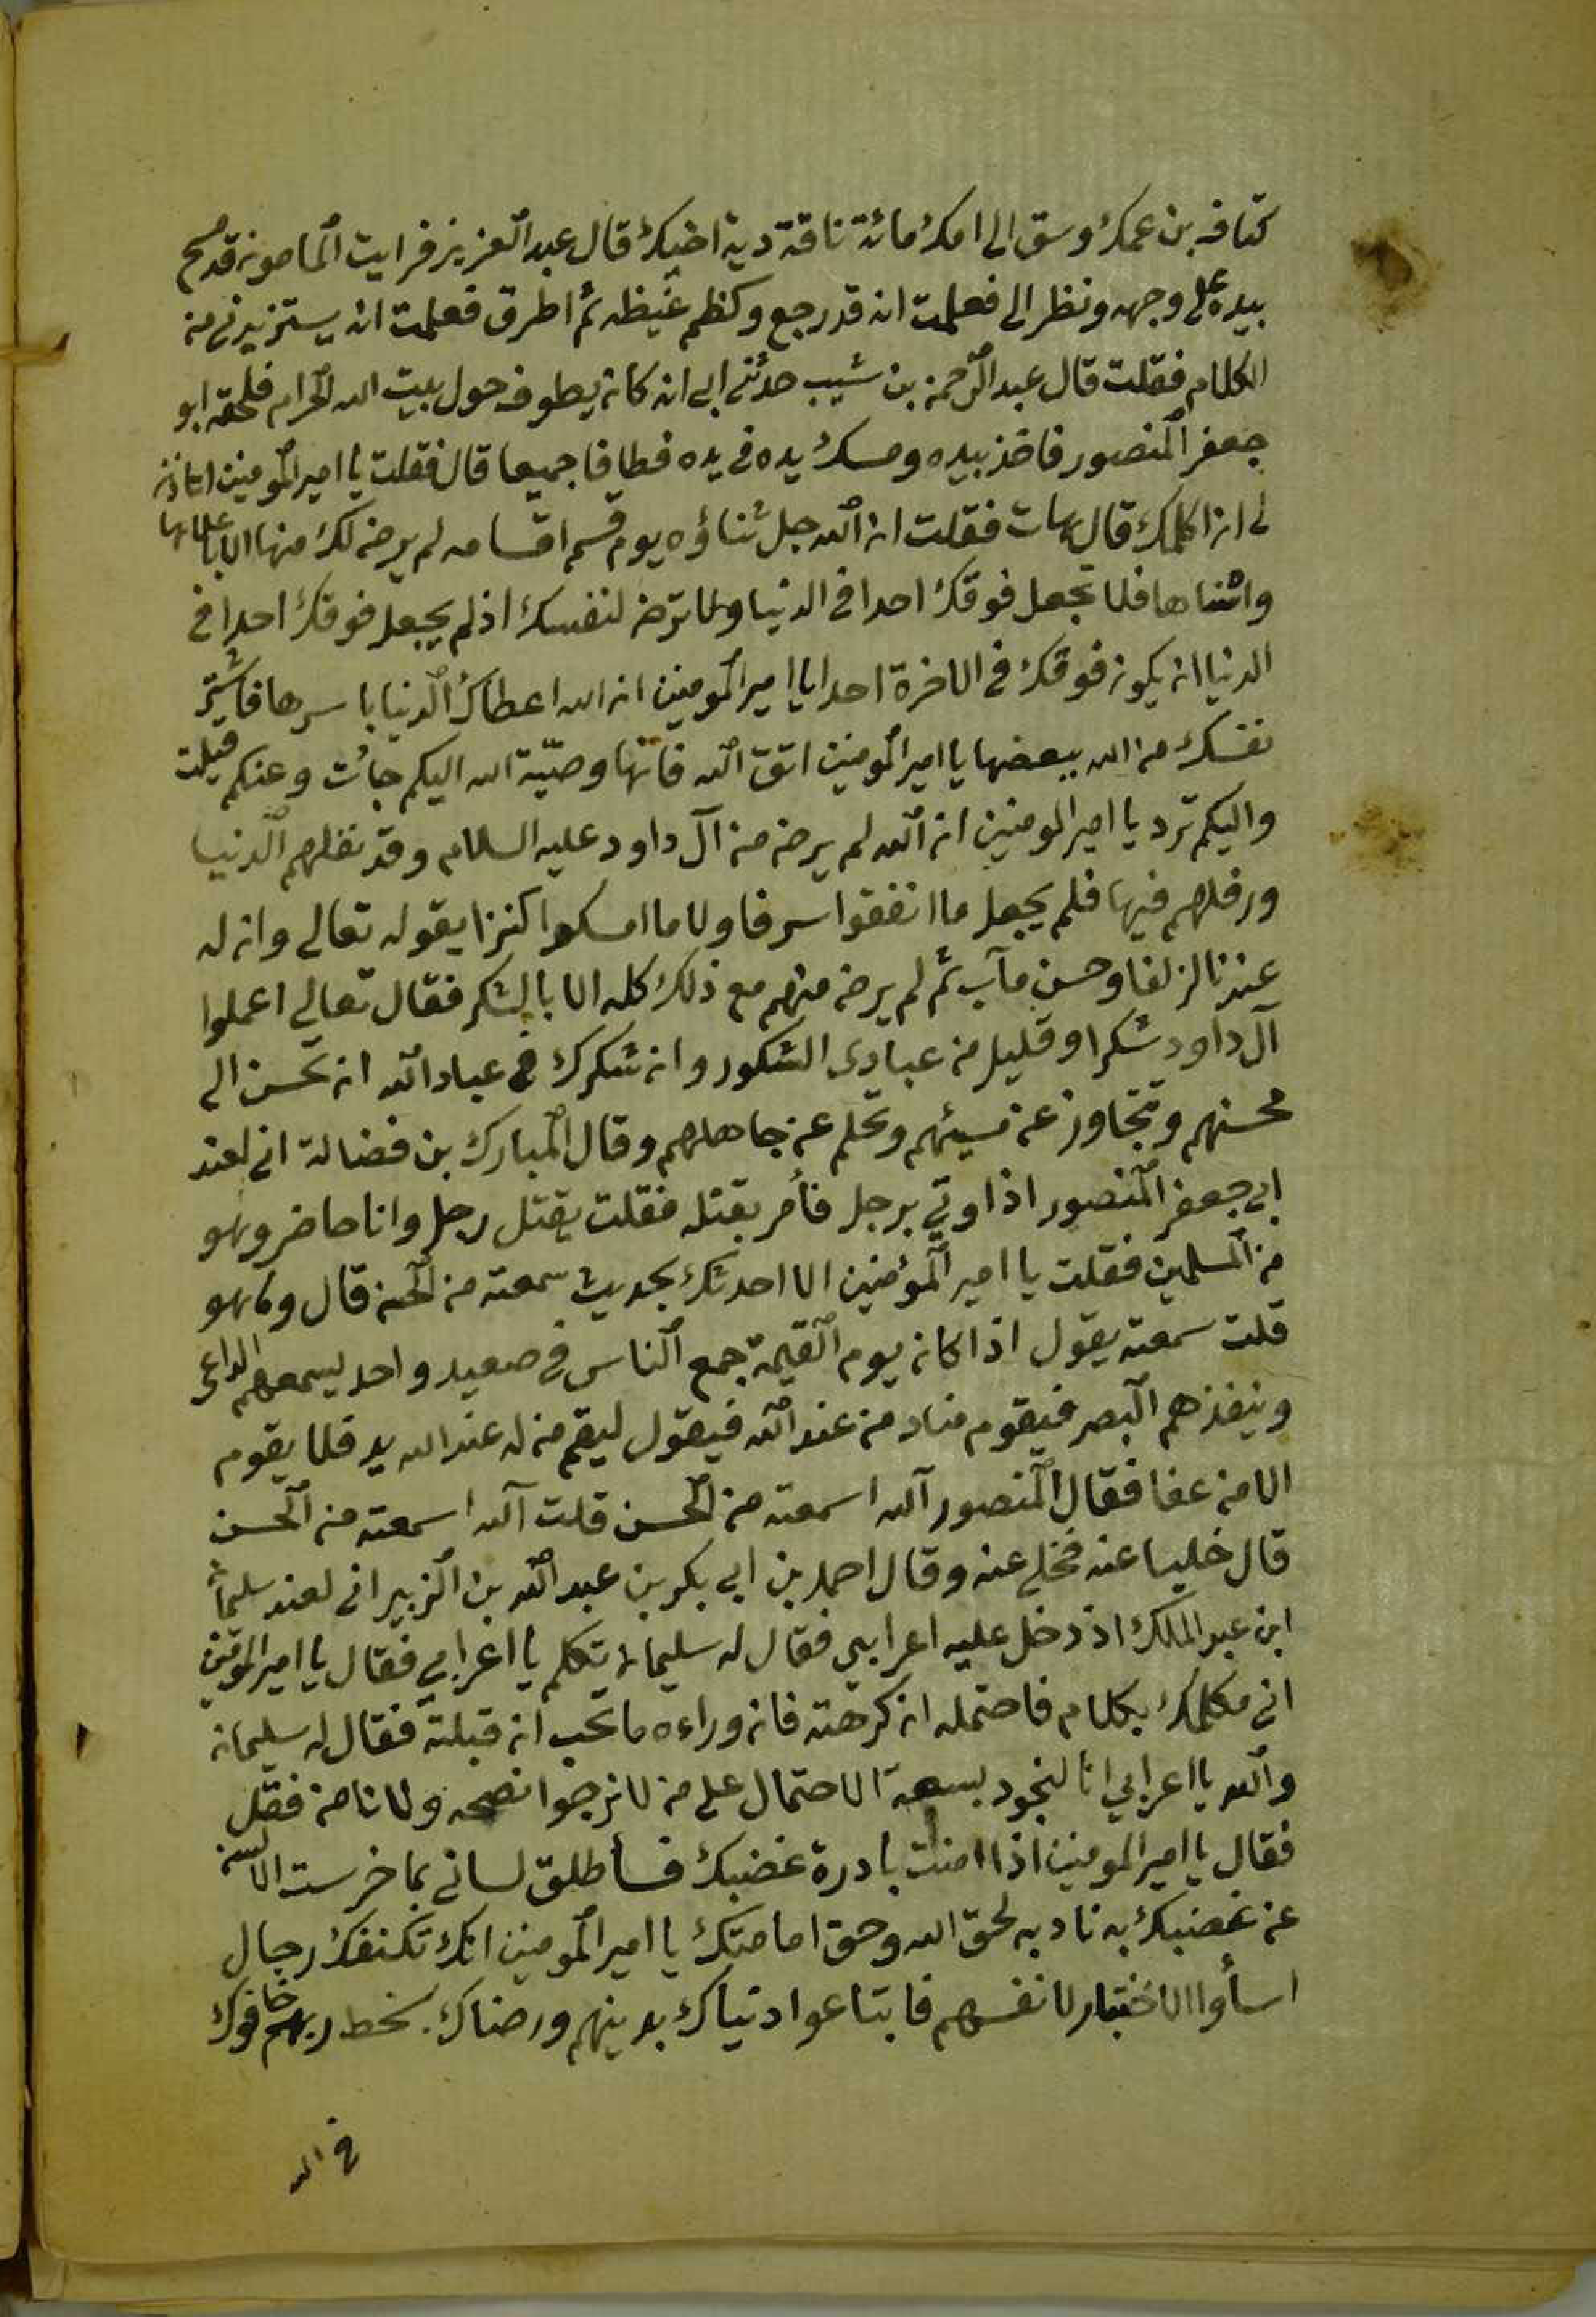 كتاف بن عمك وسق الى امك مائة ناقة دية اخيك قال عبد العزيز فرايت المامون قد مسح
بيده على وجهه ونظر الى فعلمت انه قد رجع وكظم غيظه ثم اطرق فعلمت انه يستزيدني من
الكلام فقلت قال عبد الرحمن بن شيب حدثني ابي انه كان يطوف حول بيت الله الحرام فلحقه ابو
جعفر المنصور فاخذ بيده ومسك يده في يده فطافا جميعا قال فقلت يا امير المومنين اتاذن
لى ان اكلمك قال هات فقلت ان الله جل ثناؤه يوم قسم اقسامه لم يرض لك منها الا باعلاها
واسناها فلا تجعل فوقك احدا في الدنيا ولا ترض لنفسك اذ لم يجعل فوقك احدا في
الدنيا ان يكون فوقك في الاخرة احد يا امير المومنين ان الله اعطاك الدنيا باسرها فاشتر
نفسك من الله ببعضها يا امير المومنين اتق الله فانها وصيّة الله اليكم جائت وعنكم قبلت
واليكم ترد يا امير المومنين ان الله لم يرض من آل داود عليه السلام وقد نفلهم الدنيا
ورفلهم فيها فلم يجعل ما انفقوا سرفا ولا ما امسكوا كنزا يقوله تعالى وان له
عندنا لزلفا وحسن مآب ثم لم يرض منهم مع ذلك كله الا بالشكر فقال تعالى اعملوا
آل داود شكرا وقليل من عبادي الشكور وان شكرك في عباد الله ان تحسن الى
محسنهم وتتجاوز عن مسيئهم وتحلم عن جاهلهم وقال المبارك بن فضالة اني لعند
ابي جعفر المنصور اذ اوتي برجل فأمر بقتله فقلت يقتل رجل وانا حاضر وهو
من المسلمين فقلت يا امير المؤمنين الا احدثك بحديث سمعته من الحسن قال وما هو
قلت سمعته يقول اذا كان يوم القيمة جمع الناس في صعيد واحد يسمعهم الداعى
وينفذهم البصر فيقوم مناد من عند الله فيقول ليقم من له عند الله يد فلا يقوم
الا من عفا فقال المنصور آلله اسمعته من الحسن قلت آلله اسمعته من الحسن
قال خليا عنه فخلى عنه وقال احمد بن ابي بكر بن عبد الله بن الزبير اني لعند سليمان
ابن عبد الملك اذ دخل عليه اعرابي فقال له سليمان تكلم يا اعرابي فقال يا امير المومنين
اني مكلمك بكلام فاحتمله ان كرهته فان وراءه ما تحب ان قبلته فقال له سليمان
والله يا اعرابي انا لنجود بسعة الاحتمال على من لا نرجوا نصحه ولا نامن فقل
فقال يا امير المومنين اذا امنت بادرة غضبك فسأطلق لساني بما خرست الالسن
عن غضبك به ناد به لحق الله وحق امامتك يا امير المومنين انك تكنفك رجال
اسأوا الاختيار لانفسهم فابتاعوا دنياك بدينهم ورضاك بسخط ربهم خافوك
في الله